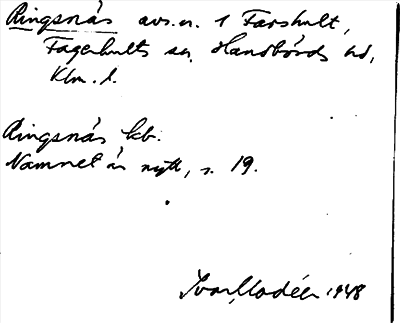 Ringsnäs avs. er. 1 Farshult,
Fagerhults sn, Handbörds hd,
Klm. l.
Ringsnäs kb.
Namnet är nytt, s. 19.
Ivar Modéer 1948